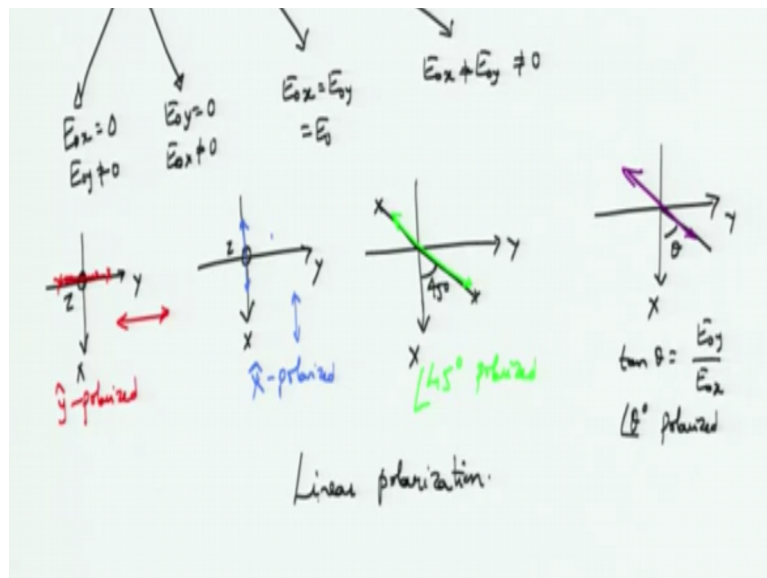 E0x = 0
E0y ≠ 0
E0y = 0
E0x ≠ 0
E0x = E0y
= E0
E0x ≠ E0y ≠ 0
z
Y
X
ŷ-polarized
z
Y
X
x̂-polarized
x
Y
45°
x
X
∠45° polarized
Y
θ
X
tan θ = E0y / E0x
∠θ° polarized
Linear polarization.